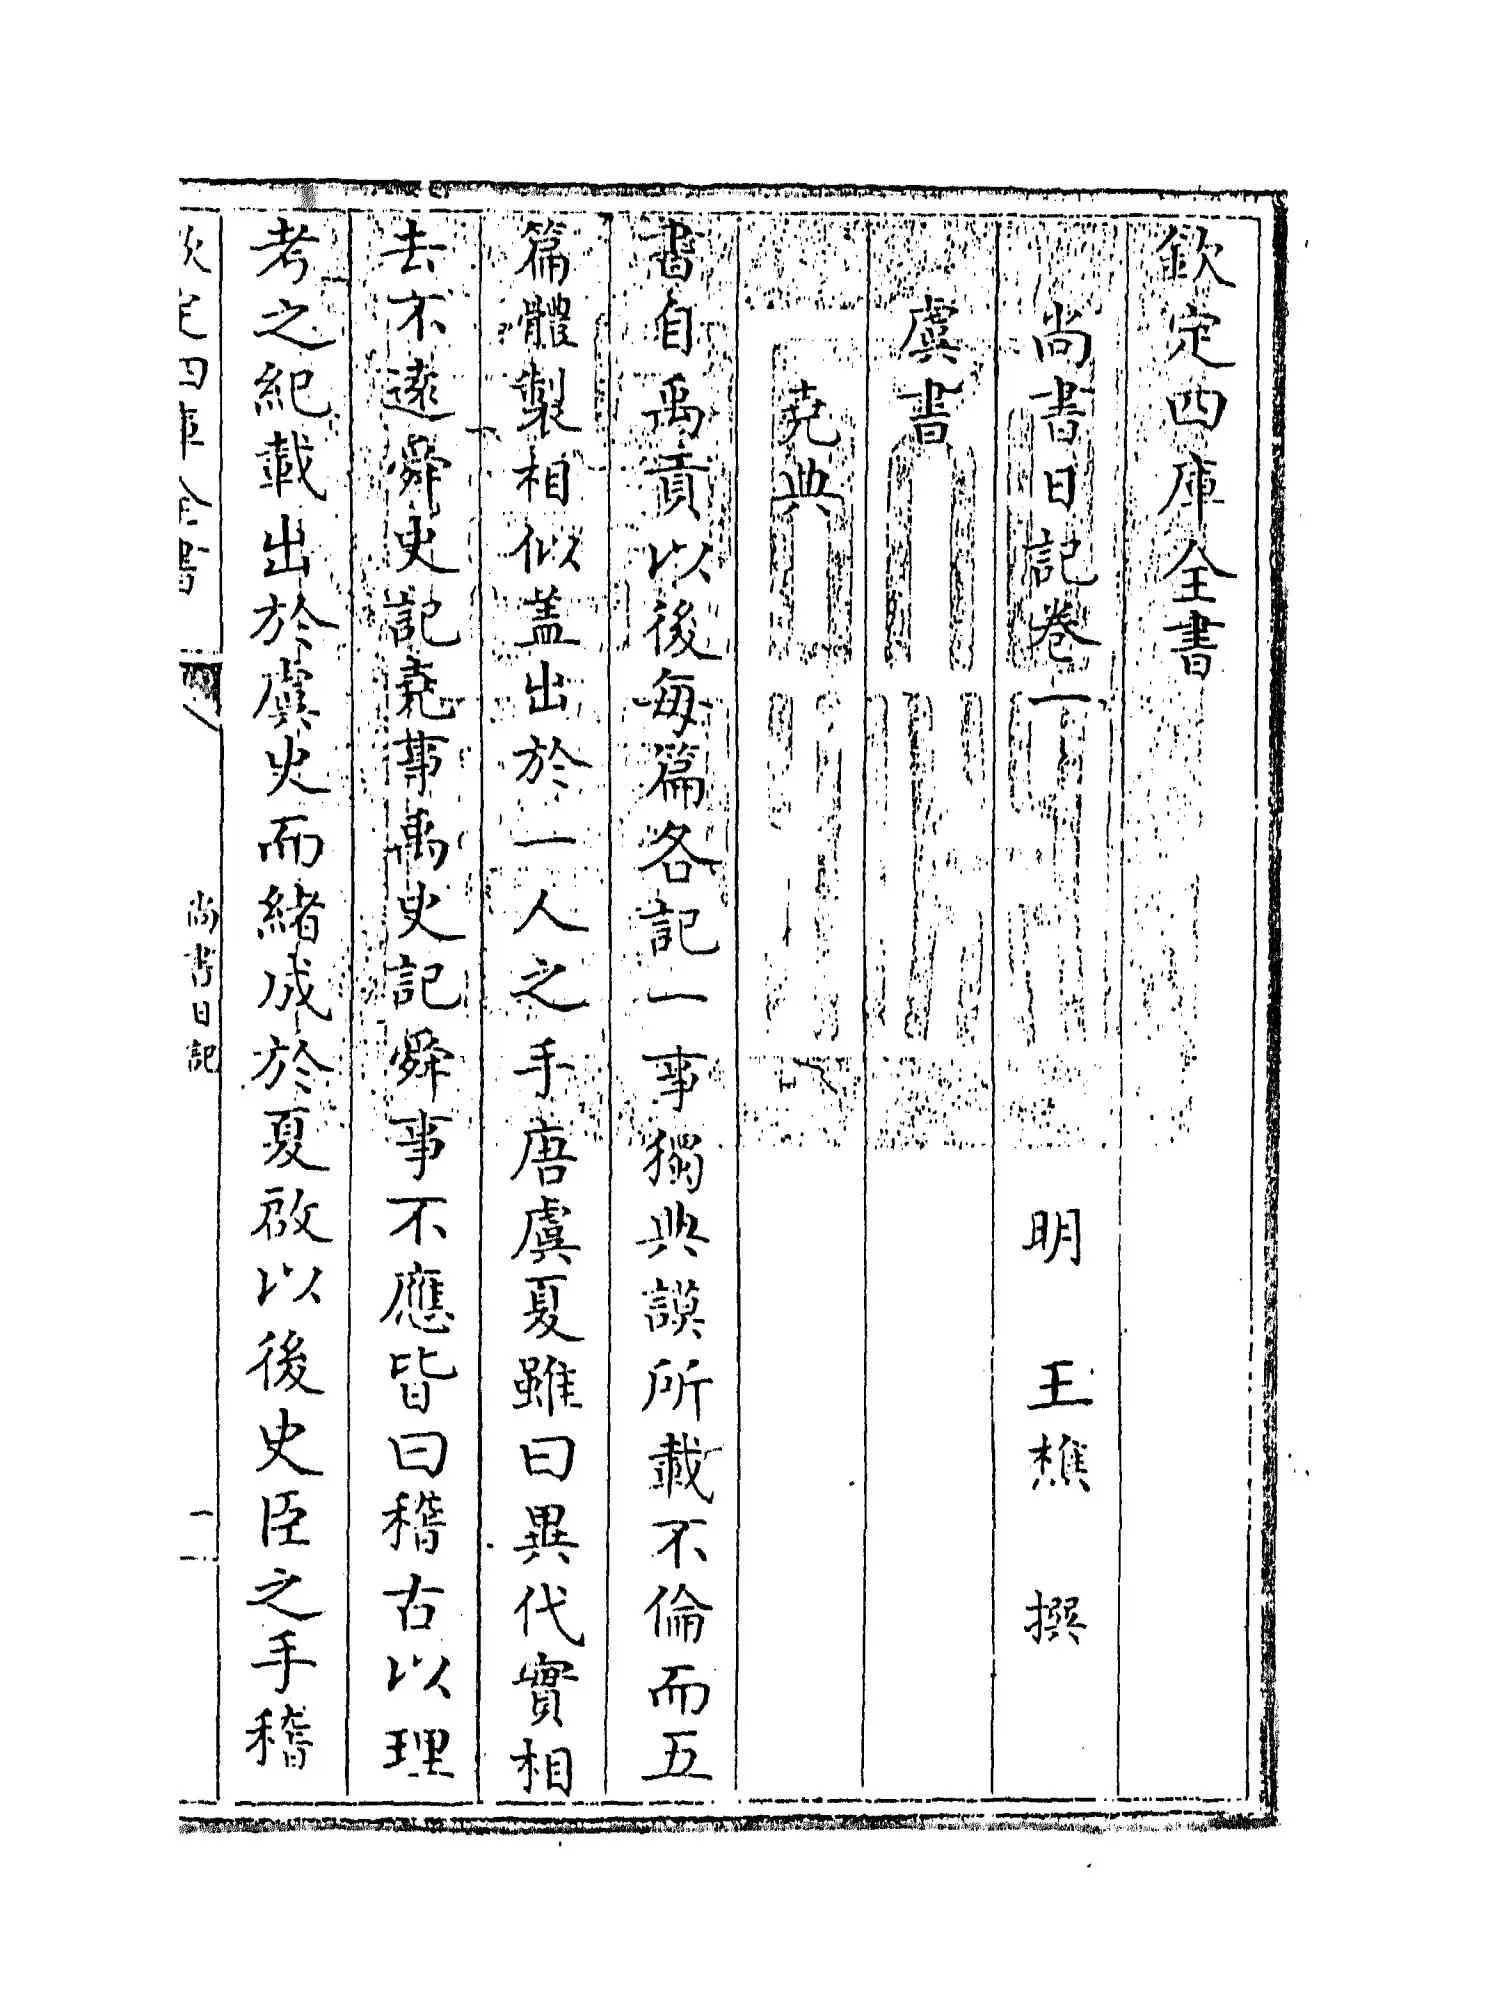 欽定四庫全書
尚書日記卷一　明　王樵　撰
虞書
堯典
書自禹貢以後每篇各記一事獨典謨所載不倫而五
篇體製相似蓋出於一人之手唐虞夏雖曰異代實相
去不遠舜史記堯事禹史記舜事不應皆曰稽古以理
考之紀載出於虞史而緒成於夏啟以後史臣之手稽
欽定四庫全書
尚書日記
一